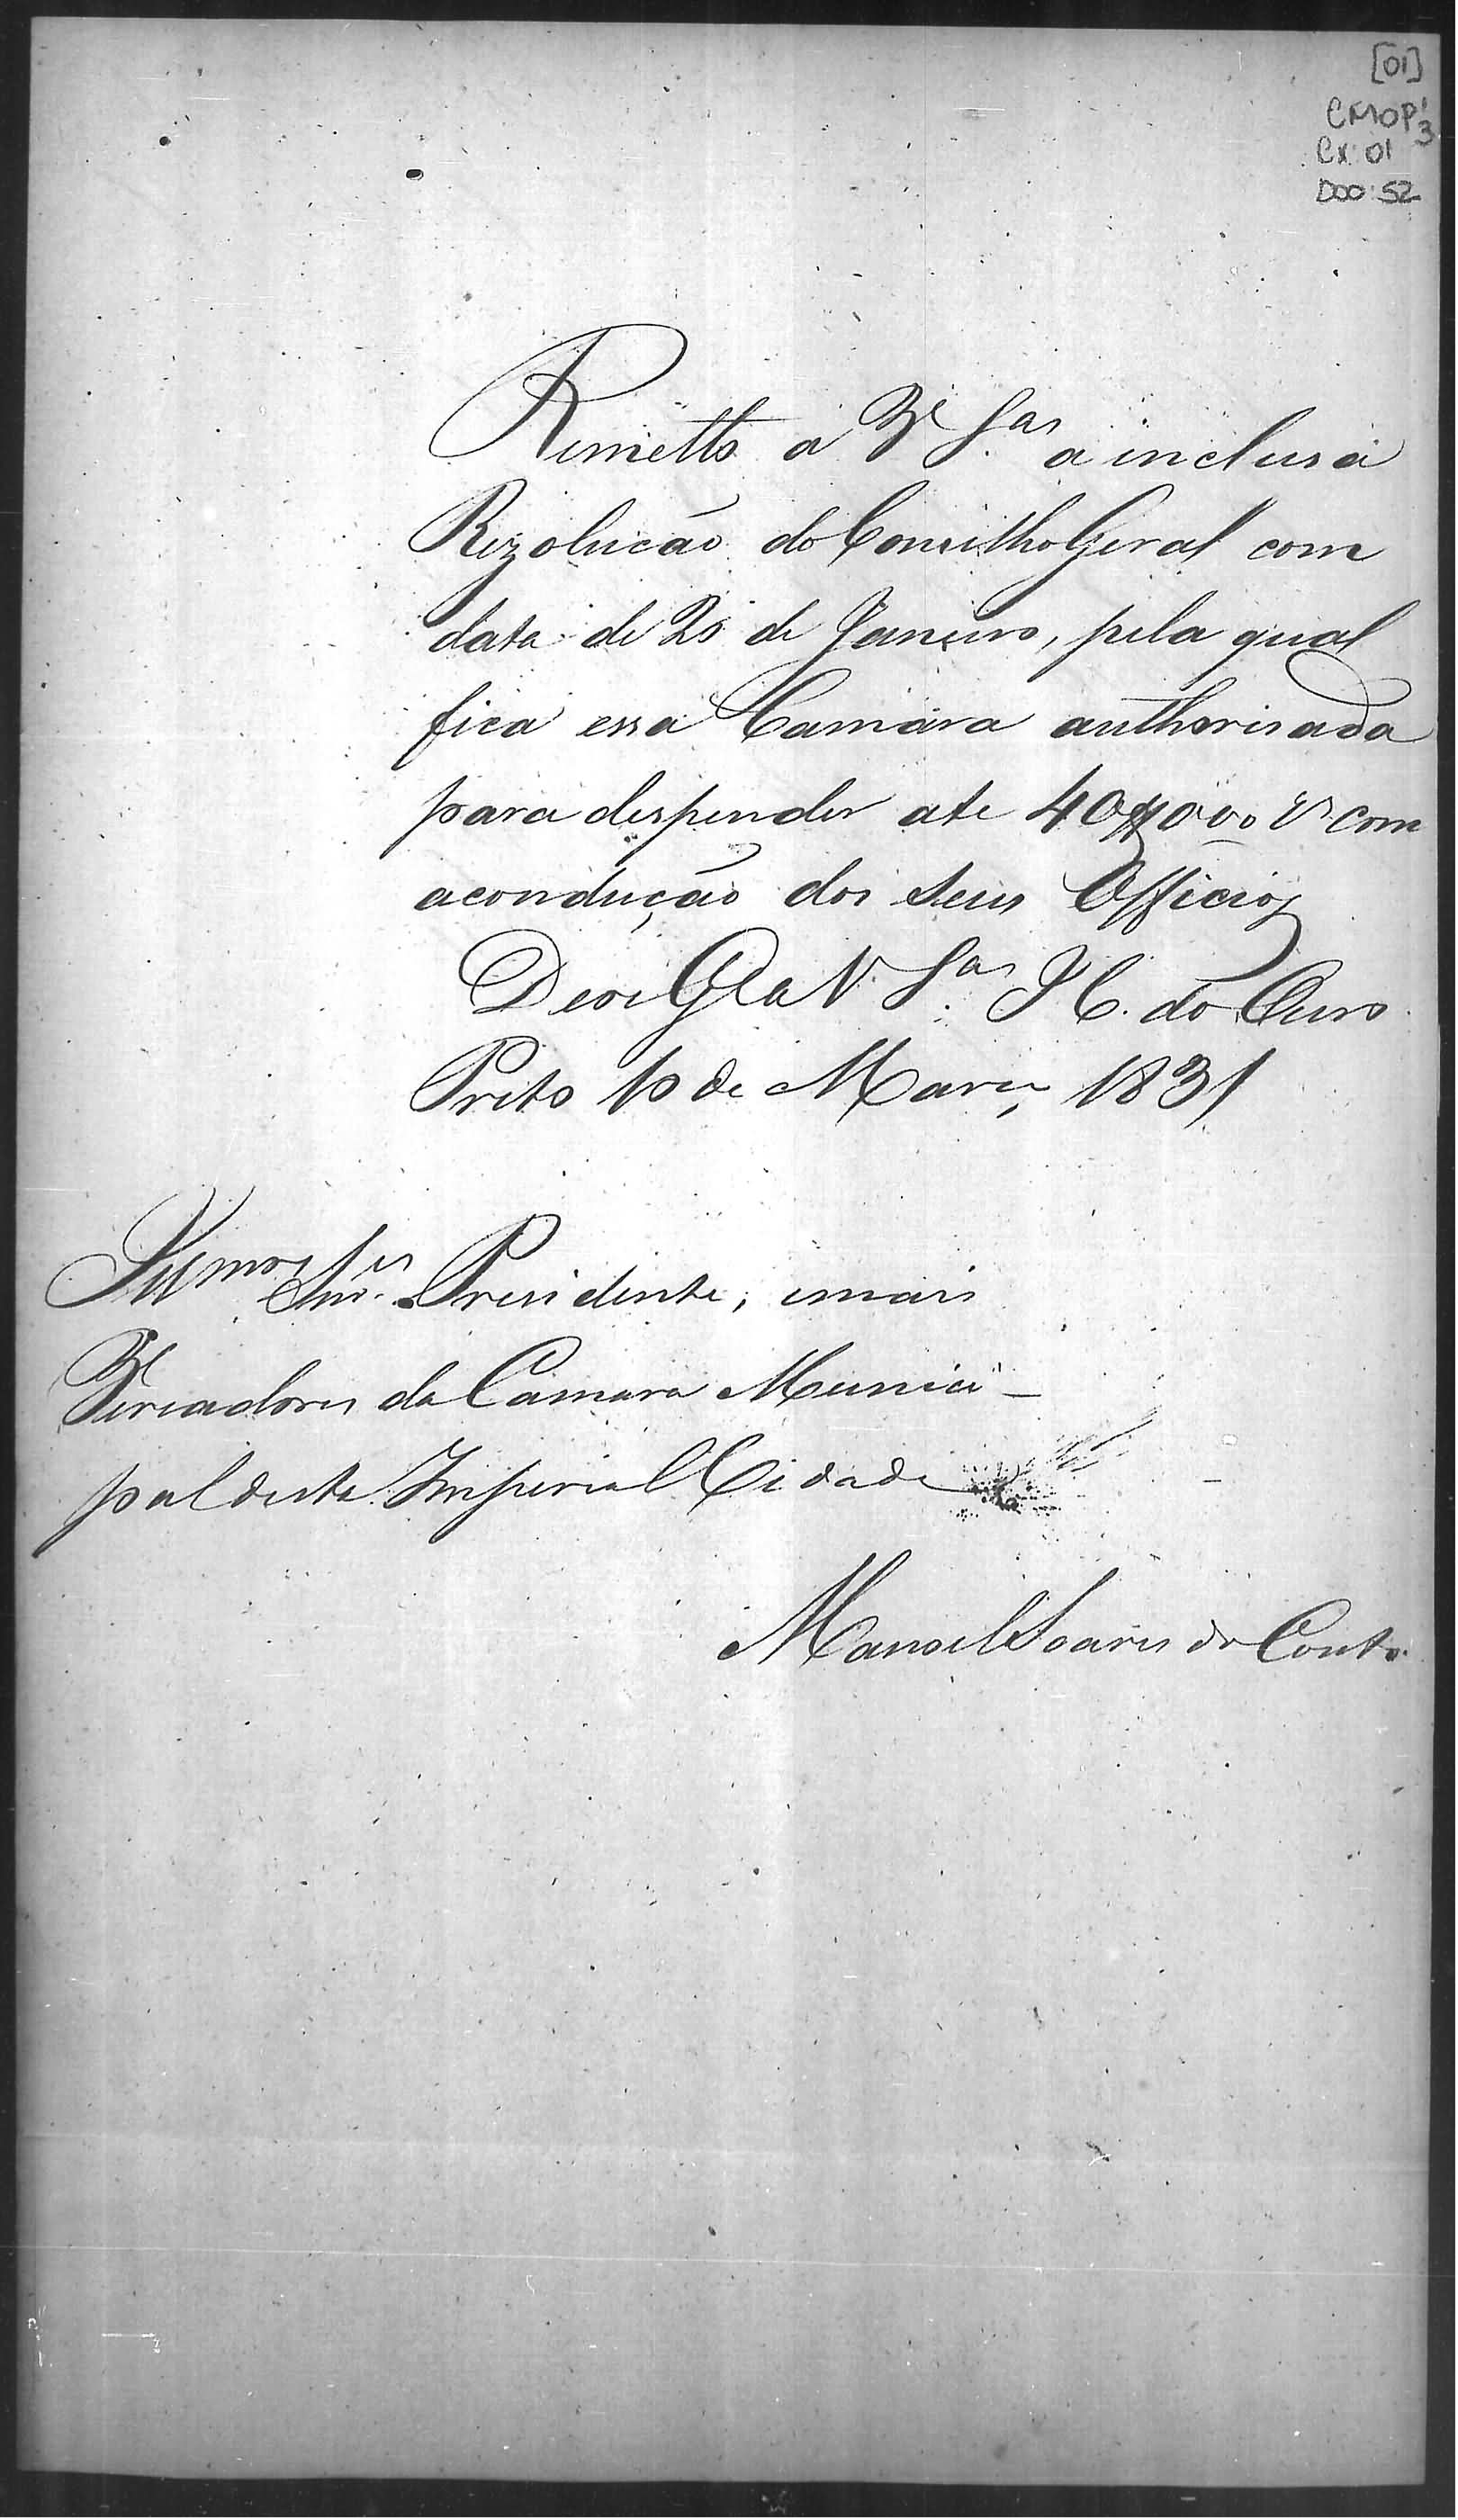 [01]
CMOP 1/3
Cx: 01
DOC: 52
Remetto a V. S.as a inclusa
Rezolução do Conselho Geral com
data de 28 de Janeiro, pela qual
fica essa Camara authorisada
para despender ate 40$000 rs com
a condução dos seus Officios
Deos G.e a V. S.as I. C. do Ouro
Preto 10 de Março 1831
Illmos Snres Presidente, e mais
Vereadores da Camara Munici-
pal desta Imperial Cidade
Manoel Soares do Couto